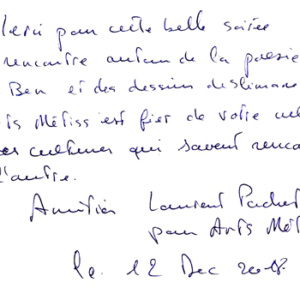 Merci pour cette belle soirée
rencontre autour de la poésie
Ben et des dessins de Slimane
Arts Métiss est fier de votre
cultures qui savent
l'autre.
Amitiés Laurent
pour Arts Mét
le 12 Dec 2018.